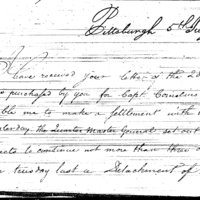 Pittsburgh 5th
Have received your letter of the 2d
purchased by you for Capt. Cornelius
ble me to make a settlement with
terday the Quarter Master General set out
ects to continue not more than three
tuesday last a Detachment of